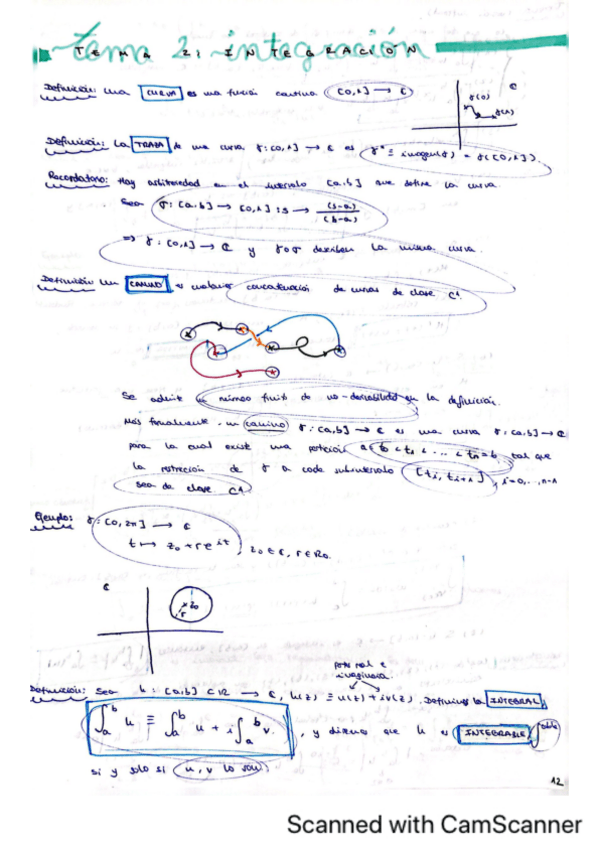 Tema 2: integración
TEMA 2: INTEGRACIÓN
Definición: una CURVA es una función continua [0,1] → ℂ
ℂ
γ(0)
γ(1)
Definición: La TRAZA de una curva γ: [0,1] → ℂ es γ* ≡ imagen(γ) = γ([0,1]).
Recordatorio: Hay arbitrariedad en el intervalo [a,b] que define la curva.
Sea σ: [a,b] → [0,1] : s → (s-a)/(b-a)
⇒ γ: [0,1] → ℂ y γ∘σ describen la misma curva.
Definición Un CAMINO es cualquier concatenación de curvas de clase C¹.
Se admite un número finito de no-derivabilidad en la definición.
Más formalmente, un camino γ: [a,b] → ℂ es una curva γ: [a,b] → ℂ
para la cual existe una partición a = t₀ < t₁ < ... < tn = b tal que
la restricción de γ a cada subintervalo [ti, ti+1], i=0,...,n-1
sea de clase C¹.
Ejemplo: γ: [0,2π] → ℂ
t ↦ z₀ + r e^{it}, z₀ ∈ ℂ, r ∈ ℝ₀.
ℂ
z₀
r
parte real e
imaginaria.
Definición: Sea h: [a,b] ⊂ ℝ → ℂ, h(z) ≡ u(z) + iv(z). Definimos la INTEGRAL
∫_a^b h ≡ ∫_a^b u + i∫_a^b v. , y diremos que h es INTEGRABLE
si y solo si u, v lo son.
12
Scanned with CamScanner